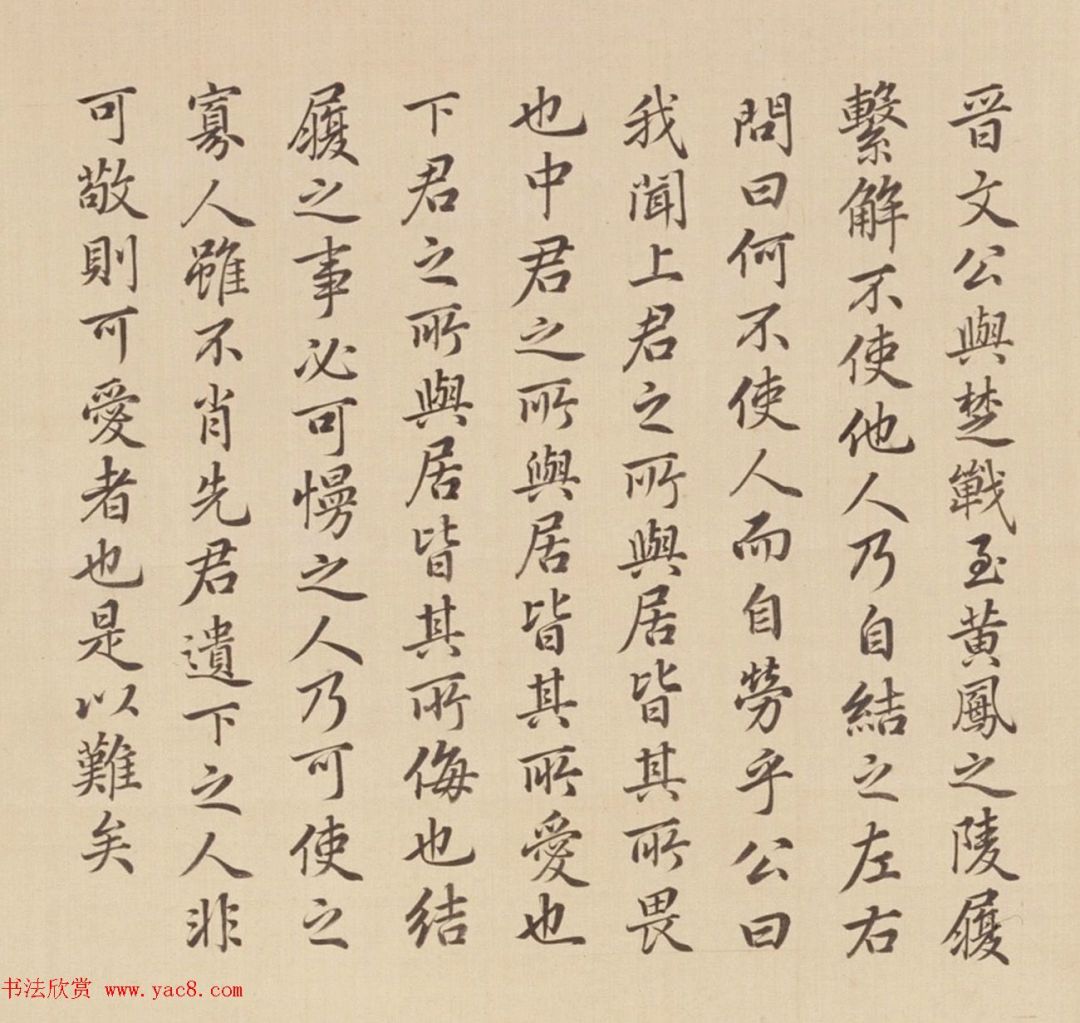 晋文公與楚戰至黄鳳之陵履
繫解不使他人乃自結之左右
問曰何不使人而自勞乎公曰
我聞上君之所與居皆其所畏
也中君之所與居皆其所愛也
下君之所與居皆其所侮也結
履之事必可慢之人乃可使之
寡人雖不肖先君遺下之人非
可敬則可愛者也是以難矣
书法欣赏 www.yac8.com